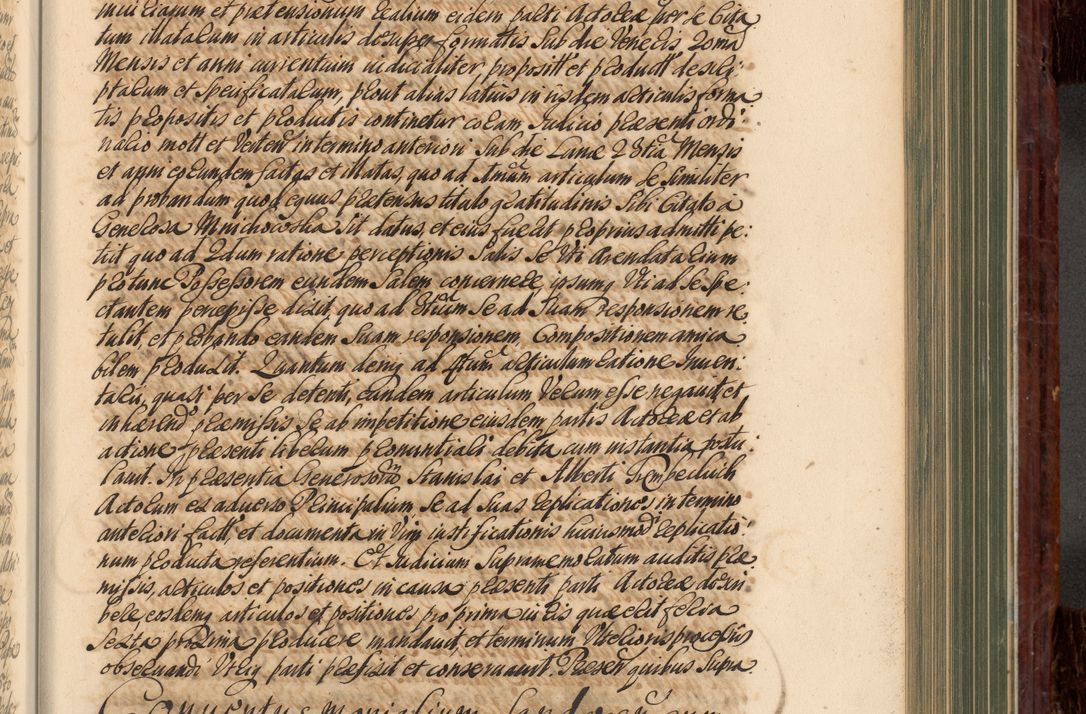 et prætensionum realium eidem parti Actoreæ per se Cita
tum illatarum in articulis desuper formatis Sub die Veneris 20ma
Mensis et anni currentium iudicialiter proposit et product descri
ptarum et specificatarum, prout alias latius in iisdem articulis forma
tis propositis et productis continetur coram Iudicio præsenti ordi
nario mott et Verten in termino anteriori Sub die Lunæ 23tia Mensis
et anni eorundem factas et illatas, quo ad 1mum articulum se Similiter
ad probandum quod equus prætensus titulo gratitudinis Sibi Citato à
Generosa Mnichowska Sit datus, et eius fuerit proprius admitti pe:
tiit quo ad 2dum ratione perceptionis Salis Se Uti Arendatarium
pro tunc Possessorem eundem Salem concernere, ipsumq Uti ad se spe
ctantem percepisse dixit, quo ad 3tium Se ad Suam responsionem re
tulit, et probando eandem Suam responsionem Compositionem amica
bilem produxit. Quantum deniq ad 4tum articulum ratione Inven
tarii, quasi per Se detenti, eundem articulum Verum esse negavit et
inhærendo præmissis Se ab impetitione eiusdem partis Actoreæ et ab
actione præsenti liberum pronuntiari debita cum instantia postu
lavit. In præsentia Generosorum Stanislai et Alberti
Actorum ex adverso Principalium Se ad Suas replicationes in termino
anteriori fact, et documenta in Vim iustificationis huiusmodi replicatio
num producta referentium. Et Iudicium Supramemoratum auditis præ
missis, articulos et positiones in causa præsenti parti Actoreæ describere
bere, eosdemq articulos et positiones pro prima iuris quæ erit feria
Sexta proxima producere mandavit, et terminum Ulterioris processus
observandi Utriq parti præfixit et conservavit. Præsen quibus Supra
Conventus monialium